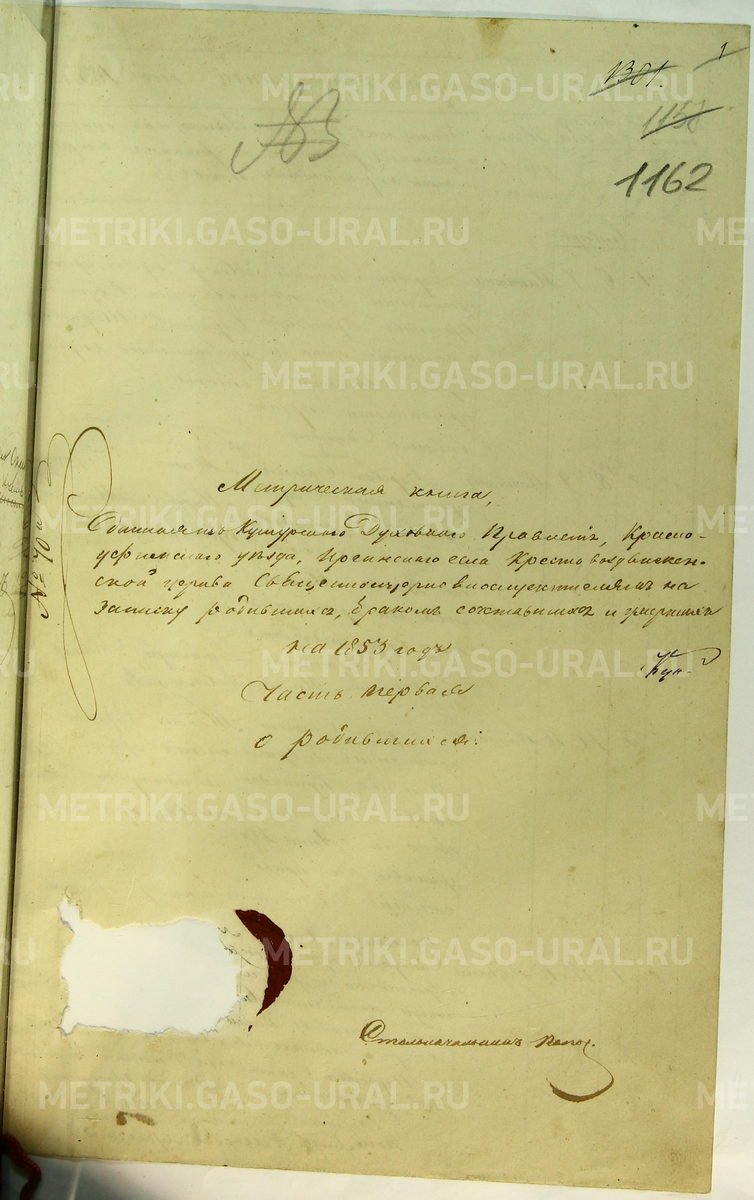 1
1301.
1158
1162
№ 70й
Метрическая книга,
Данная изъ Кунгурского Духовного Правленія, Красно-
уфимского уѣзда, Иргинского села Кресто воздвижен-
ской церкви Священноцерковнослужителямъ на
записку родившихся, бракомъ сочетавшихся и умершихъ
на 1853 годъ
Часть первая
о родившихся.
Столоначальникъ
METRIKI.GASO-URAL.RU